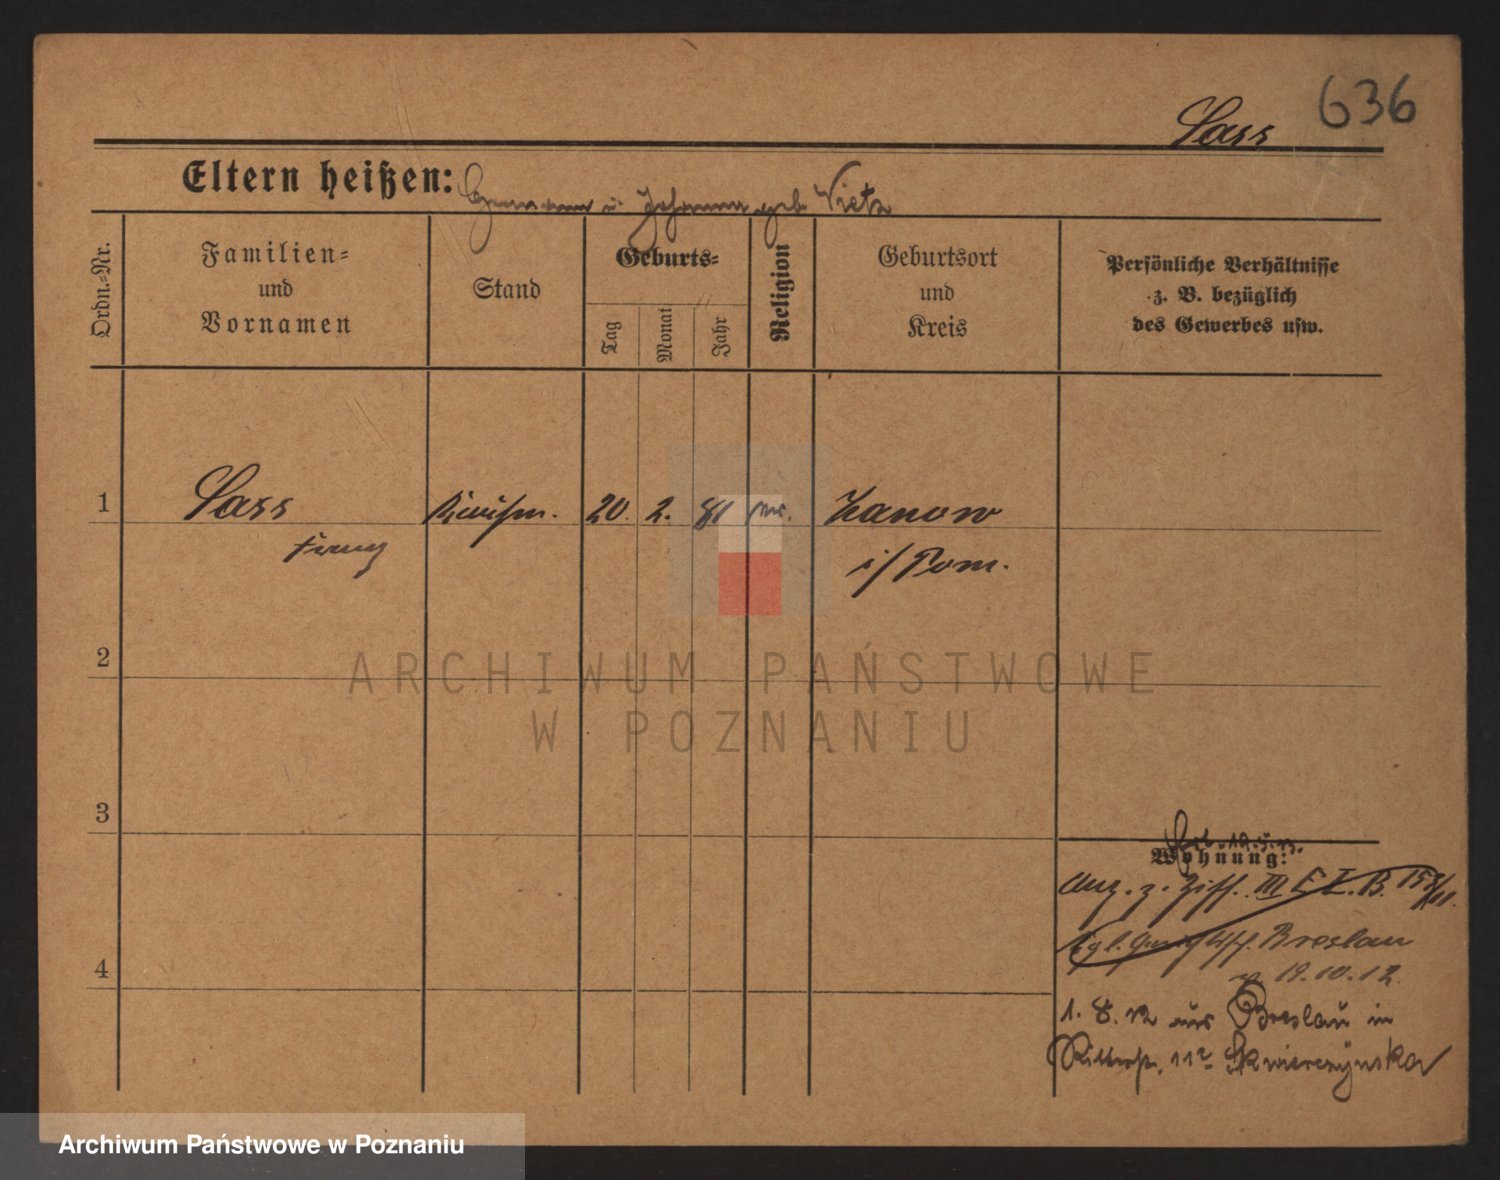 636
Sass
Eltern heißen: u. Johanna geb. Vietz
Ordn.-Nr.
Familien-
und
Vornamen
Stand
Geburts-
Tag
Monat
Jahr
Religion
Geburtsort
und
Kreis
Persönliche Verhältnisse
z. B. bezüglich
des Gewerbes usw.
1
Sass
Franz
20. 2. 81
Zanow
i/Pom.
2
ARCHIWUM PAŃSTWOWE
W POZNANIU
3
Wohnung:
Anz. z. Ziff. III
Breslau
19.10.12.
4
1. 8. 12 aus Breslau in
Ritterstr. 11 Skwierzynska
Archiwum Państwowe w Poznaniu